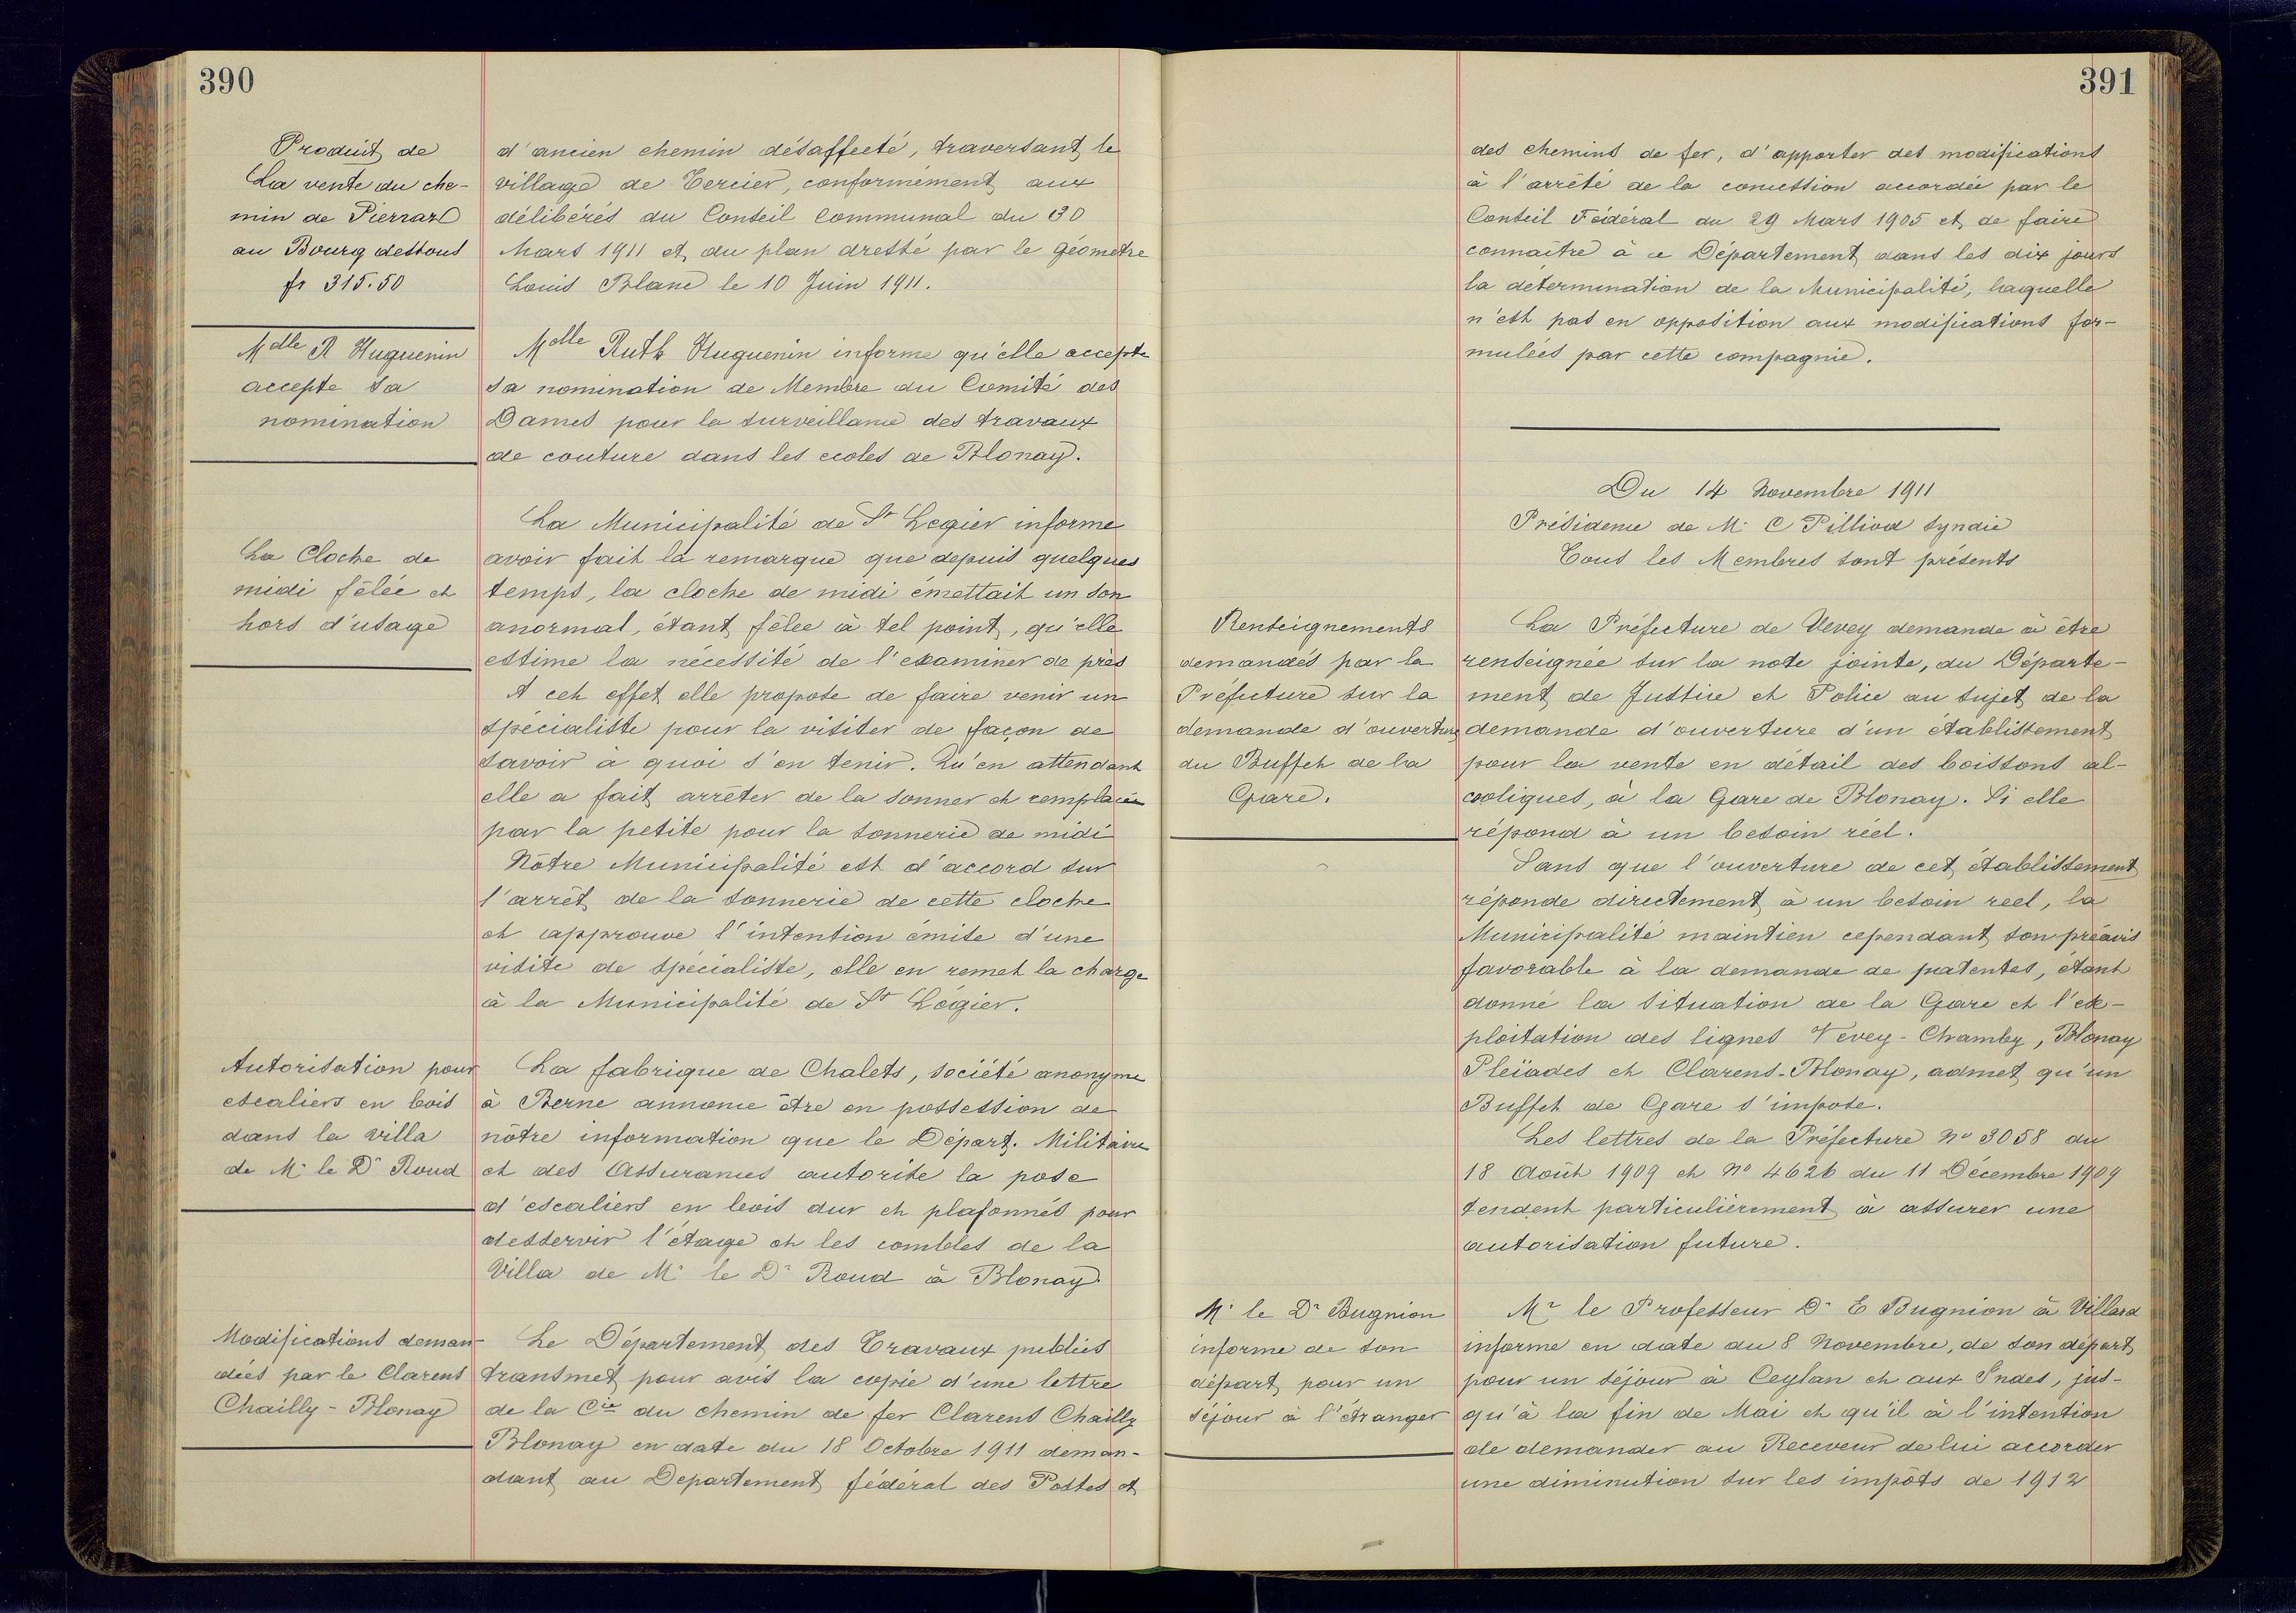 390
Produit de
La vente du che-
min de Pierrard
au Bourg dessous
fr 315.50
d'ancien chemin désaffecté, traversant le
village de Tercier, conformément aux
délibérés du Conseil Communal du 30
Mars 1911 et du plan dressé par le géomètre
Louis Blanc le 10 Juin 1911.
Melle R Huguenin
accepte sa
nomination
Melle Ruth Huguenin informe qu'elle accepte
sa nomination de Membre du Comité des
Dames pour la surveillance des travaux
de couture dans les ecoles de Blonay.
La Cloche de
midi fêlée et
hors d'usage
La Municipalité de St Legier informe
avoir fait la remarque que depuis quelques
temps, la cloche de midi émettait un son
anormal, étant fêlée à tel point, qu'elle
estime la nécessité de l'examiner de près
A cet effet elle propose de faire venir un
spécialiste pour la visiter de façon de
savoir à quoi s'en tenir. Qu'en attendant
elle a fait arrêter de la sonner et remplacée
par la petite pour la sonnerie de midi
Nôtre Municipalité est d'accord sur
l'arrêt de la sonnerie de cette cloche
et approuve l'intention émise d'une
visite de spécialiste, elle en remet la charge
à la Municipalité de St Légier.
Autorisation pour
escaliers en bois
dans la villa
de Mr le Dr Roud
La fabrique de Chalets, société anonyme
à Berne annonce être en possession de
nôtre information que le Départ. Militaire
et des Assurances autorise la pose
d'escaliers en bois dur et plafonnés pour
desservir l'étage et les combles de la
Villa de Mr le Dr Roud à Blonay.
Modifications deman-
dées par le Clarens
Chailly - Blonay
Le Département des Travaux publics
transmet pour avis la copie d'une lettre
de la Cie du chemin de fer Clarens Chailly
Blonay en date du 18 Octobre 1911 deman-
dant au Departement fédéral des Postes et
391
des chemins de fer, d'apporter des modifications
à l'arrêté de la concession accordée par le
Conseil Fédéral du 29 Mars 1905 et de faire
connaître à ce Département dans les dix jours
la détermination de la Municipalité, laquelle
n'est pas en opposition aux modifications for-
mulées par cette compagnie.
Du 14 Novembre 1911
Présidence de Mr C Pilliod Syndic
Tous les Membres sont présents
Renseignements
demandés par la
Préfecture sur la
demande d'ouverture
du Buffet de la
Gare.
La Préfecture de Vevey demande à être
renseignée sur la note jointe, du Départe-
ment de Justice et Police au sujet de la
demande d'ouverture d'un établissement
pour la vente en détail des boissons al-
cooliques, à la Gare de Blonay. Si elle
répond à un besoin réel.
Sans que l'ouverture de cet établissement
réponde directement à un besoin reel, la
Municipalité maintien cependant son préavis
favorable à la demande de patentes, étant
donné la situation de la Gare et l'ex-
ploitation des lignes Vevey - Chamby, Blonay
Pleïades et Clarens-Blonay, admet qu'un
Buffet de Gare s'impose.
Les lettres de la Préfecture No 3058 du
18 Août 1909 et No 4626 du 11 Décembre 1909
tendent particulièrement à assurer une
autorisation future.
Mr le Dr Bugnion
informe de son
départ pour un
séjour à l'étranger
Mr le Professeur Dr E Bugnion à Villard
informe en date du 8 Novembre, de son départ
pour un séjour à Ceylan et aux Indes, jus-
qu'à la fin de Mai et qu'il à l'intention
de demander au Receveur de lui accorder
une diminution sur les impôts de 1912